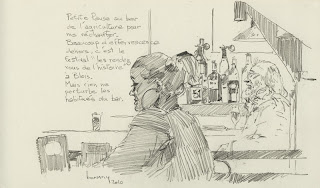 Petite Pause au bar
de l'agriculture pour
me réchauffer.
Beaucoup d'effervescence
dehors, c'est le
festival "les rendez
vous de l'histoire"
à Blois.
Mais rien ne
perturbe les
habitués du bar.
2010